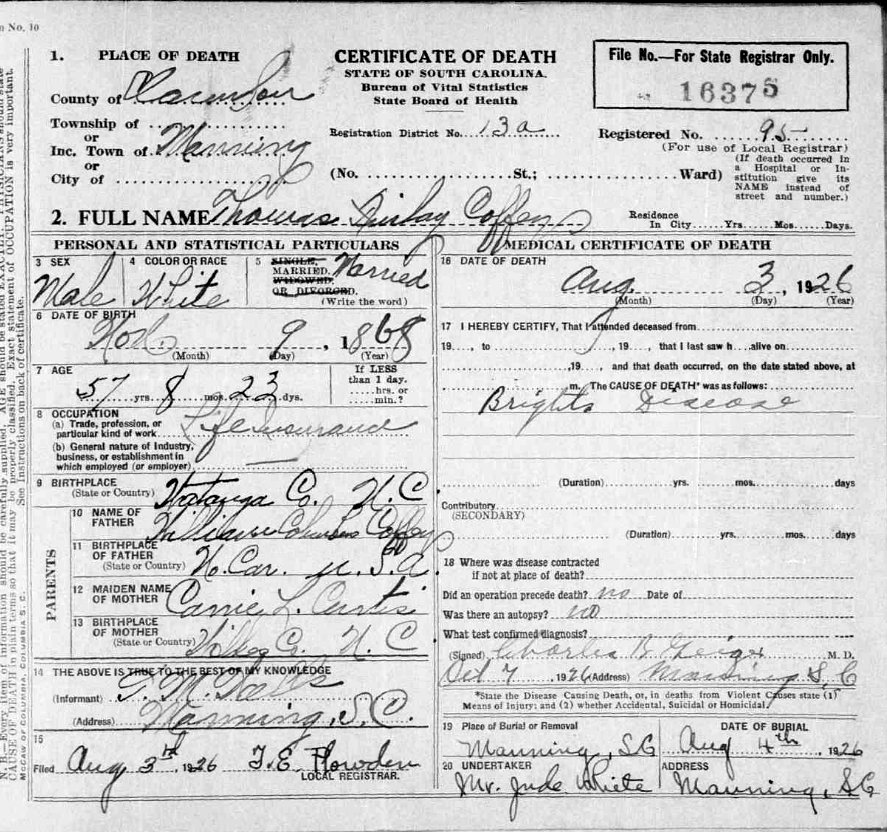 n No. 10
1. PLACE OF DEATH
County of Clarendon
Township of
or
Inc. Town of Manning
or
City of
CERTIFICATE OF DEATH
STATE OF SOUTH CAROLINA.
Bureau of Vital Statistics
State Board of Health
Registration District No. 13a
(No. St.; Ward)
File No.—For State Registrar Only.
16375
Registered No. 95
(For use of Local Registrar)
(If death occurred in
a Hospital or In-
stitution give its
NAME instead of
street and number.)
2. FULL NAME Thomas Finley Coffey
Residence
In City Yrs. Mos. Days.
PERSONAL AND STATISTICAL PARTICULARS
3 SEX
Male
4 COLOR OR RACE
White
5 SINGLE,
MARRIED,
WIDOWED
OR DIVORCED.
Married
(Write the word)
6 DATE OF BIRTH
Nov. 9, 1868
(Month) (Day) (Year)
7 AGE
57 yrs. 8 mos. 23 dys.
If LESS
than 1 day.
hrs. or
min.?
8 OCCUPATION
(a) Trade, profession, or
particular kind of work Life Insurance
(b) General nature of Industry,
business, or establishment in
which employed (or employer)
9 BIRTHPLACE
(State or Country) Watauga Co. N. C
PARENTS
10 NAME OF
FATHER
William Columbus Coffey
11 BIRTHPLACE
OF FATHER
(State or Country) No. Car. U. S. A
12 MAIDEN NAME
OF MOTHER Carrie L. Curtis
13 BIRTHPLACE
OF MOTHER
(State or Country) Wilkes Co. N. C
14 THE ABOVE IS TRUE TO THE BEST OF MY KNOWLEDGE
(Informant) T. M. Wells
(Address) Manning, S.C.
15
Filed Aug 3rd, 1926 T. E. Flowden
LOCAL REGISTRAR.
MEDICAL CERTIFICATE OF DEATH
16 DATE OF DEATH
Aug. 3, 1926
(Month) (Day) (Year)
17 I HEREBY CERTIFY, That I attended deceased from
19, to, 19, that I last saw h alive on
, 19, and that death occurred, on the date stated above, at
m. The CAUSE OF DEATH* was as follows:
Brights Disease
(Duration) yrs. mos. days
Contributory
(SECONDARY)
(Duration) yrs. mos. days
18 Where was disease contracted
if not at place of death?
Did an operation precede death? no Date of
Was there an autopsy? no
What test confirmed diagnosis?
(Signed) Charles B Geiger M. D.
Oct 7 1926 (Address) Manning S. C
*State the Disease Causing Death, or, in deaths from Violent Causes state (1)
Means of Injury; and (2) whether Accidental, Suicidal or Homicidal.
19 Place of Burial or Removal
Manning, SC
DATE OF BURIAL
Aug 4th, 1926
20 UNDERTAKER
Mr. Jude White
ADDRESS
Manning, SC
N. B.—Every item of information should be carefully supplied. AGE should be stated EXACTLY. PHYSICIANS should state
CAUSE OF DEATH in plain terms so that it may be properly classified. Exact statement of OCCUPATION is very important.
See Instructions on back of certificate.
McCAW OF COLUMBIA, COLUMBIA S. C.